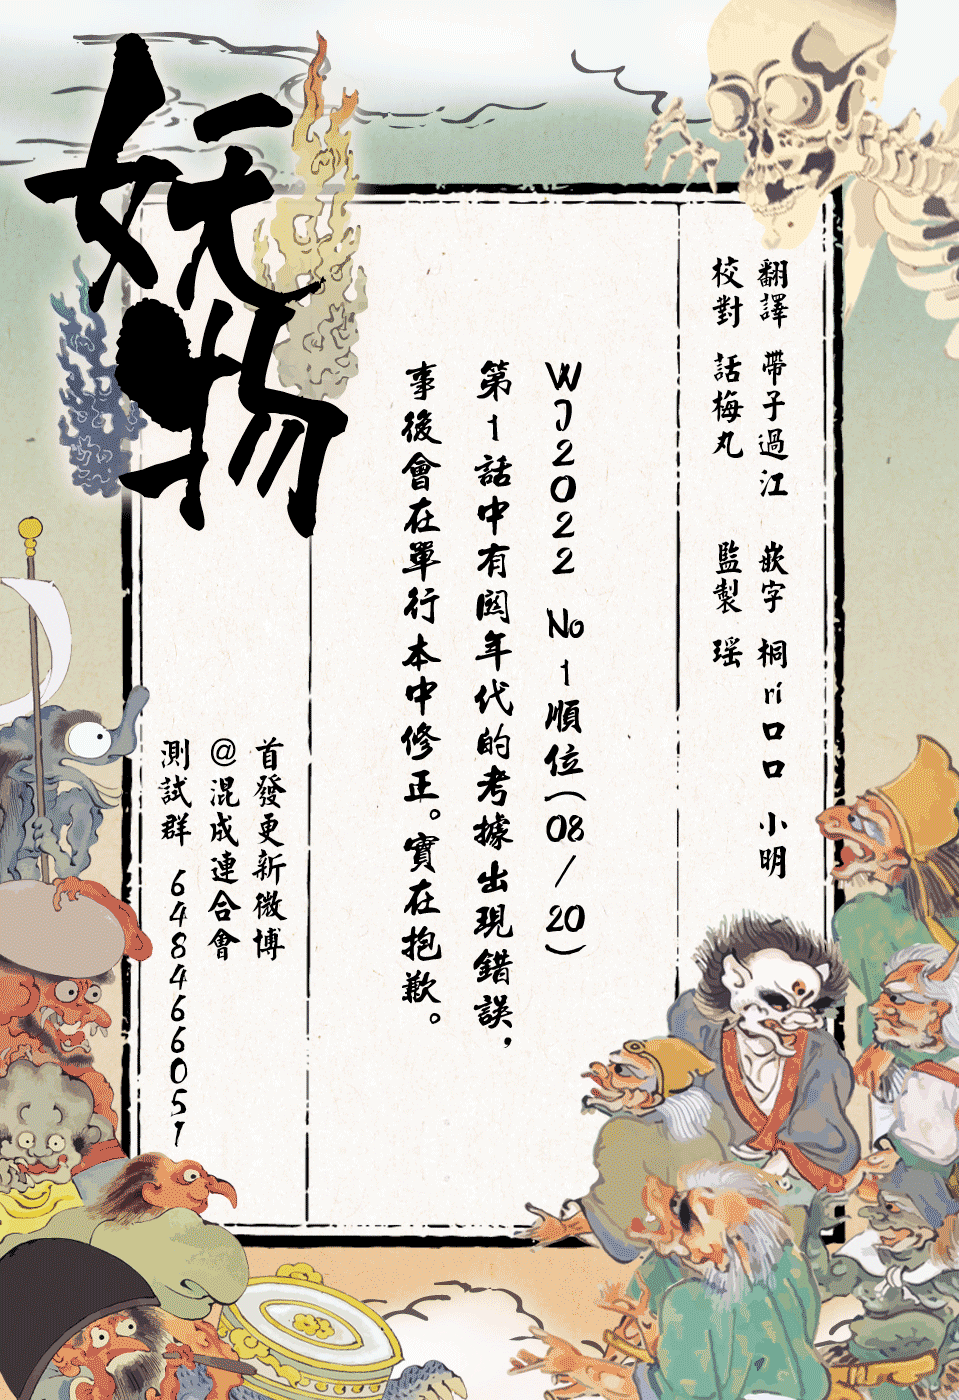 妖物
翻譯 帶子過江 嵌字 桐ri口口 小明
校對 話梅丸 監製 瑶
WJ2022 No1順位(08/20)
第1話中有関年代的考據出現錯誤，
事後會在單行本中修正。實在抱歉。
首發更新微博
@混成連合會
測試群 648466051